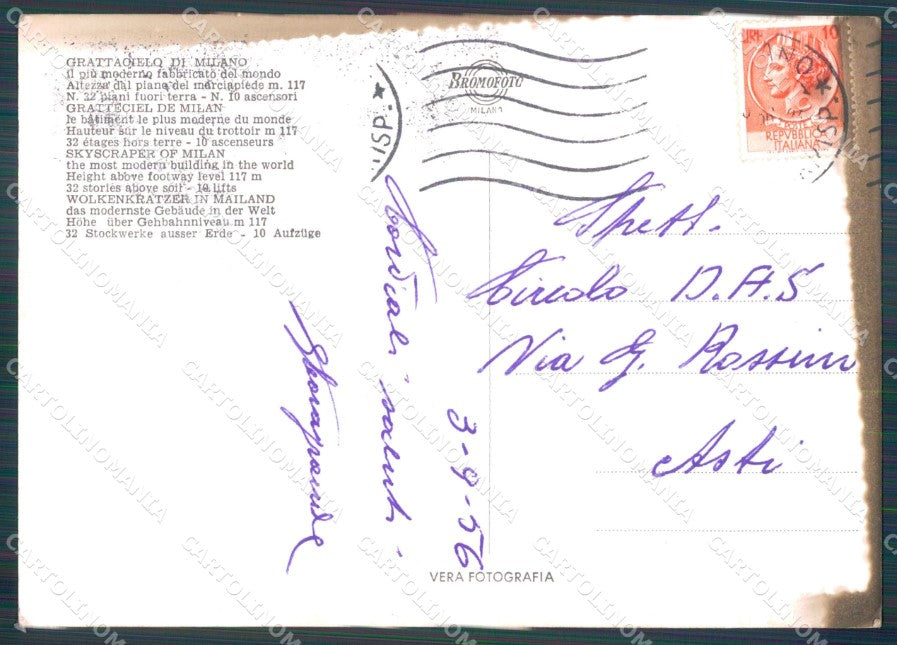 GRATTACIELO DI MILANO
il più moderno fabbricato del mondo
Altezza dal piano del marciapiede m. 117
N. 32 piani fuori terra - N. 10 ascensori
GRATTECIEL DE MILAN
le bâtiment le plus moderne du monde
Hauteur sur le niveau du trottoir m 117
32 étages hors terre - 10 ascenseurs
SKYSCRAPER OF MILAN
the most modern building in the world
Height above footway level 117 m
32 stories above soil - 10 lifts
WOLKENKRATZER IN MAILAND
das modernste Gebäude in der Welt
Höhe über Gehbahnniveau m 117
32 Stockwerke ausser Erde - 10 Aufzüge
BROMOFOTO
MILANO
LIRE 10
POSTE
REPVBBLICA
ITALIANA
Spett.
Circolo D.A.S
Via G. Rossini
Asti
Cordiali saluti
3-9-56
VERA FOTOGRAFIA
CARTOLINOMANIA